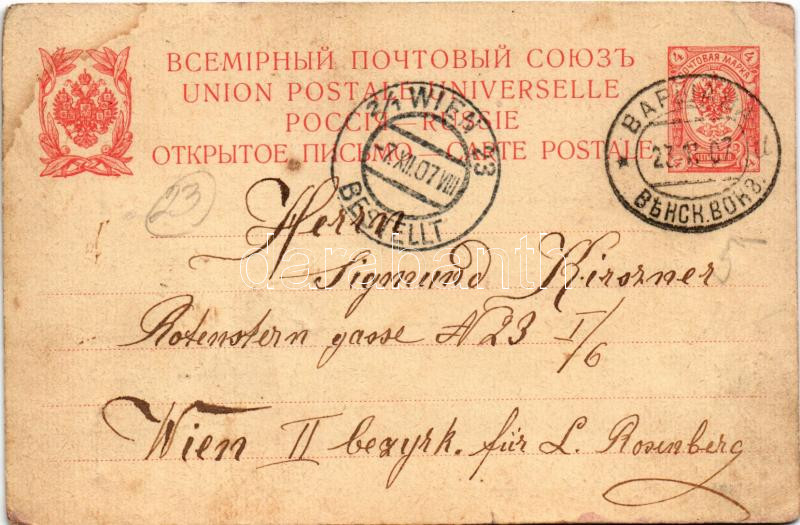 ВСЕМІРНЫЙ ПОЧТОВЫЙ СОЮЗЪ
UNION POSTALE UNIVERSELLE
РОССІЯ—RUSSIE
ОТКРЫТОЕ ПИСЬМО—CARTE POSTALE
4 4
ПОЧТОВАЯ МАРКА
ВАРШАВА
ВѢНСК.ВОКЗ.
2/1 WIEN 23
7.XII.07 VIII
BESTELLT
23
Herrn
Sigmund Kirszner
Rotenstern gasse N 23 I/6
Wien II bezyrk. für L. Rosenberg
darabanth